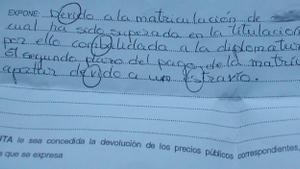 EXPONE: Devido a la matriculación de
cual ha sido superada en la titulación
por ello convalidada a la diplomatur
El segundo plazo del pago de la matrí
apartir devido a un extravío.
ITA le sea concedida la devolución de los precios públicos correspondientes,
que se expresa